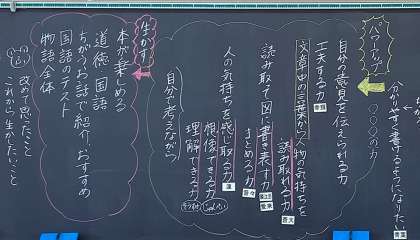 パワーアップ
○○○の力
分かりやすく書けるようになりたい
自分の意見を伝えられる力
工夫する力
文章中の言葉から人物の気持ちを
読み取れる力
読み取て図に書き表す力
まとめる力
人の気持ちを感じ取る力
想像できる力
理解できる力
自分で考えながら
生かす
本が楽しめる
道徳 国語
ちがうお話で紹介、おすすめ
国語のテスト
物語全体
改めて思ったこと
これから生かしたいこと